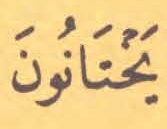 يَخْتَانُونَ